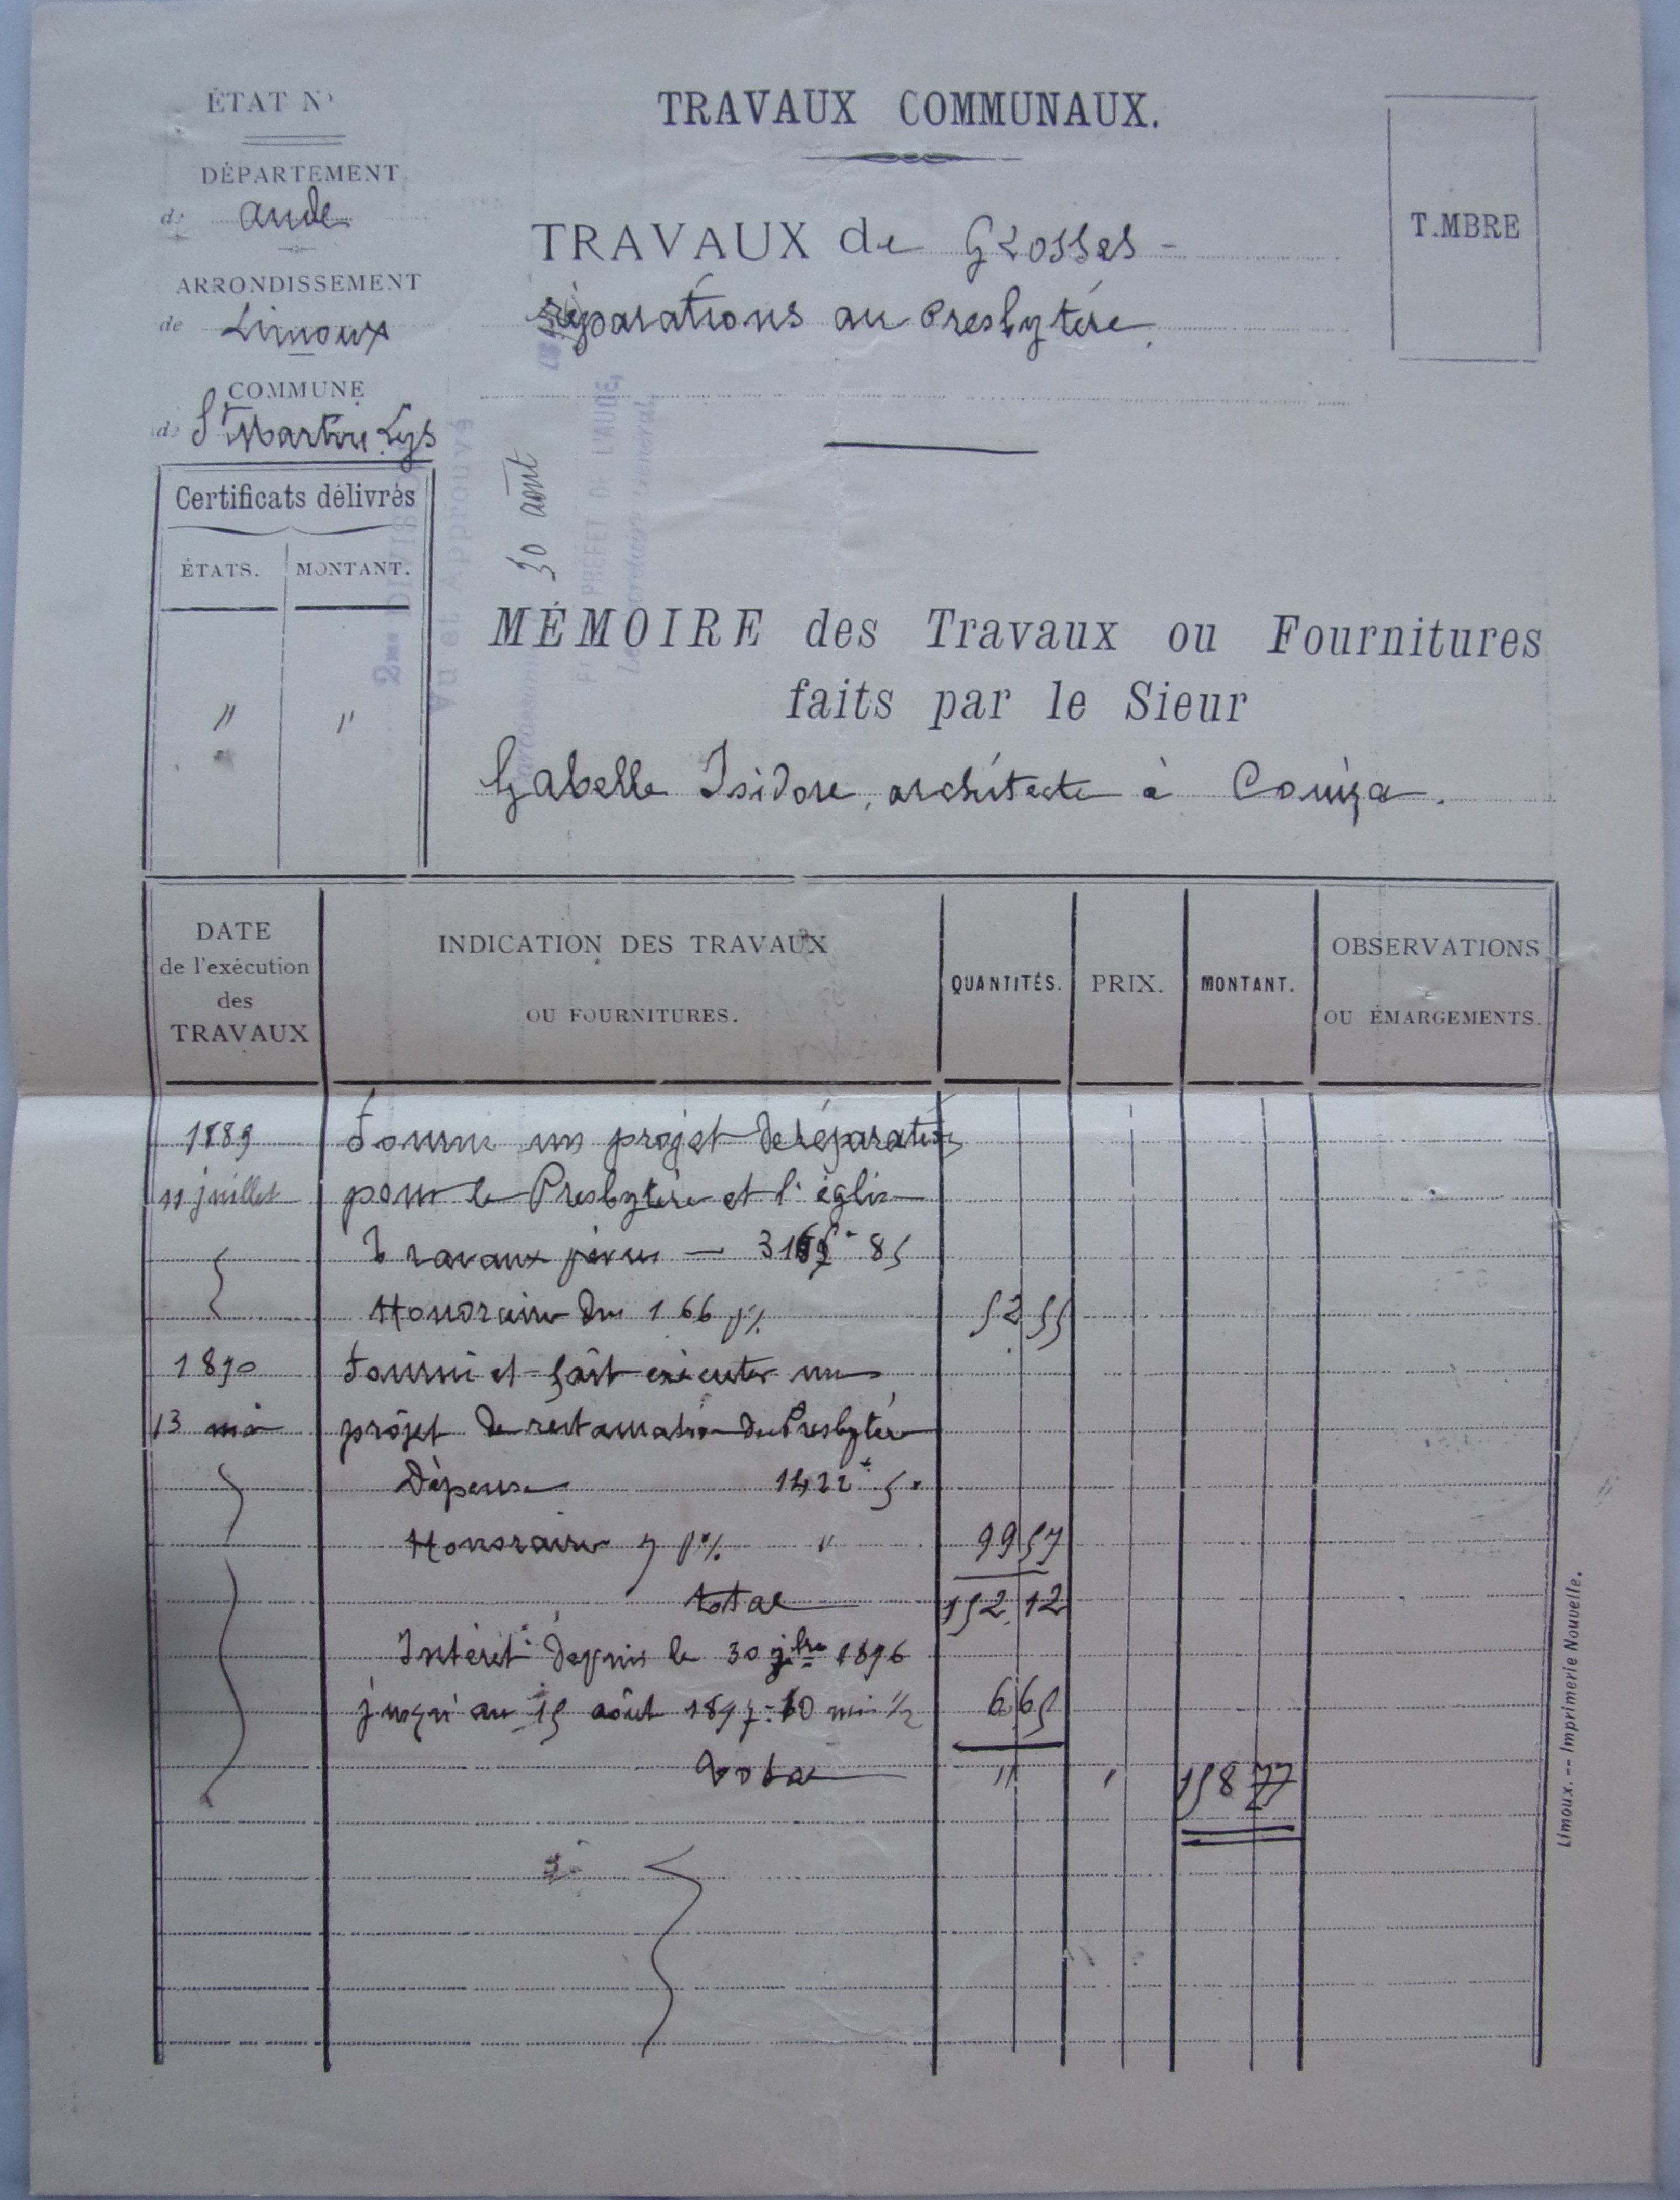 ÉTAT N°
DÉPARTEMENT
de Aude
ARRONDISSEMENT
de Limoux
COMMUNE
de St Martin Lys
Certificats délivrés
ÉTATS. MONTANT.
" "
TRAVAUX COMMUNAUX.
TIMBRE
TRAVAUX de Grosses
réparations au Presbytère.
2me DIVISION
Vu et Approuvé
30 août
PRÉFET DE L'AUDE,
Le Secrétaire Général
MÉMOIRE des Travaux ou Fournitures
faits par le Sieur
Gabelle Isidore, architecte à Couiza.
DATE
de l'exécution
des
TRAVAUX
INDICATION DES TRAVAUX
OU FOURNITURES.
QUANTITÉS.
PRIX.
MONTANT.
OBSERVATIONS
OU ÉMARGEMENTS.
1889 Fourni un projet de réparations
11 juillet pour le Presbytère et l'église
Travaux prévus — 85
Honoraires dus 1 66 p% 52 55
1890 Fourni et fait exécuter un
13 mai projet de restauration du Presbytère
Dépense 1422 f 50
Honoraires 7 p% " 99 57
total 152 12
Intérêt depuis le 30 1896
jusqu'au 15 août 1897 : 10 mois ½ 6 65
Total " " 158 77
Limoux. -- Imprimerie Nouvelle.